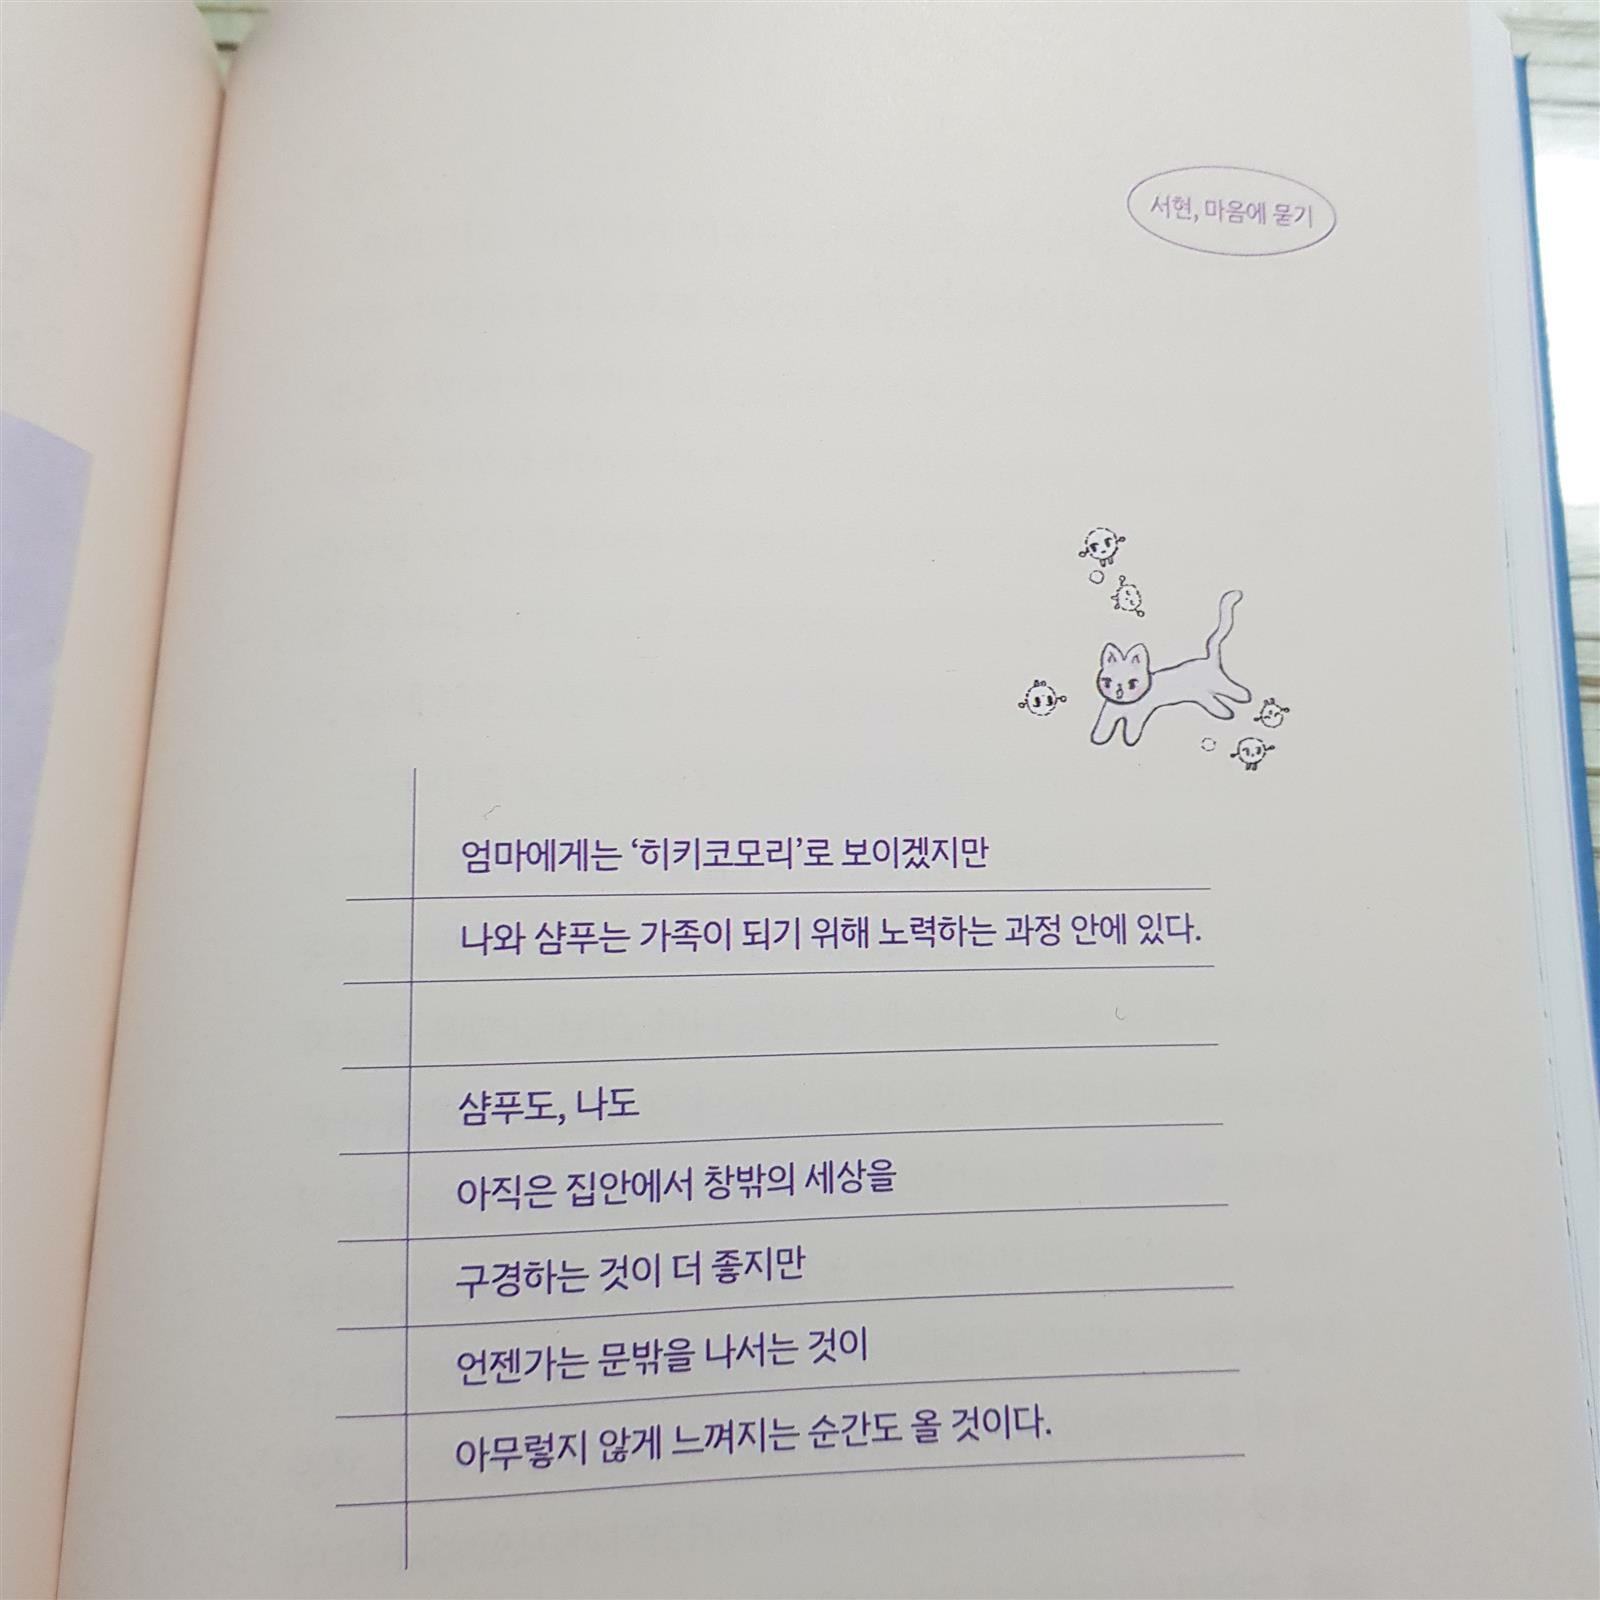 서현, 마음에 묻기
엄마에게는 ‘히키코모리’로 보이겠지만
나와 샴푸는 가족이 되기 위해 노력하는 과정 안에 있다.
샴푸도, 나도
아직은 집안에서 창밖의 세상을
구경하는 것이 더 좋지만
언젠가는 문밖을 나서는 것이
아무렇지 않게 느껴지는 순간도 올 것이다.